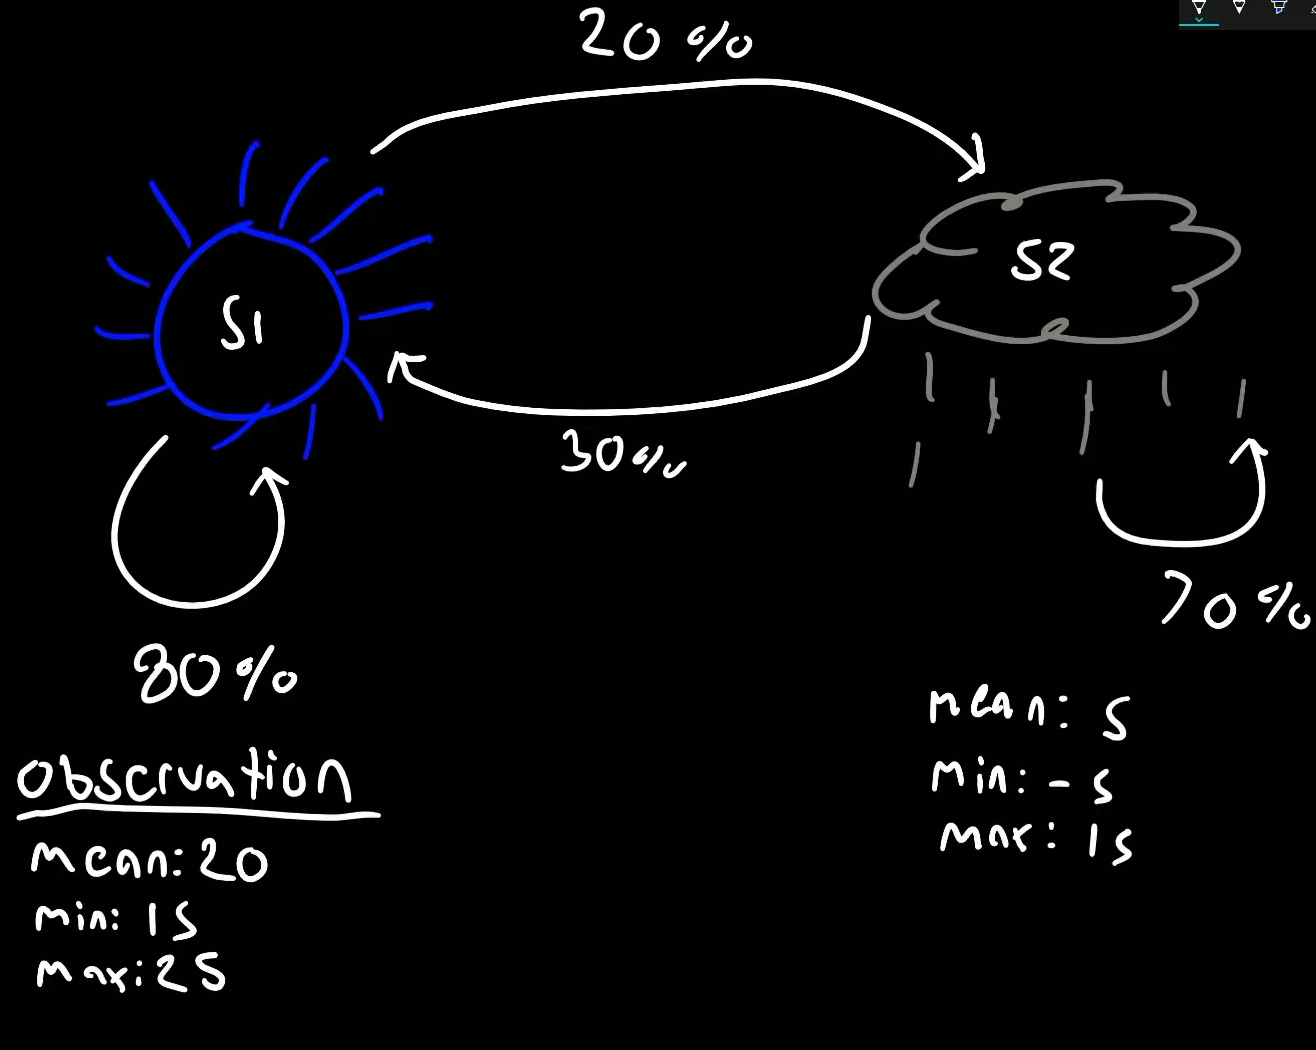 20%
S1
S2
30%
80%
70%
observation
mean: 20
min: 15
max: 25
mean: 5
min: -5
max: 15